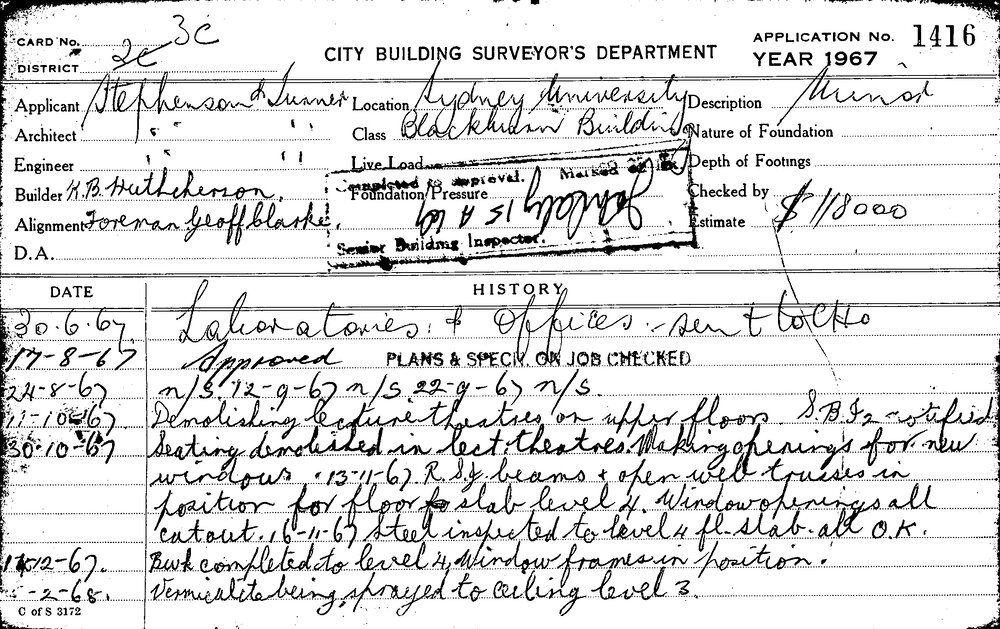 CARD No. 3C
DISTRICT 2c
CITY BUILDING SURVEYOR'S DEPARTMENT
APPLICATION No. 1416
YEAR 1967
Applicant Stephenson & Turner Location Sydney University Description
Architect " " Class Blackburn Building Nature of Foundation
Engineer " " Live Load Depth of Footings
Builder K.B. Hutcherson. Foundation Pressure Checked by
Alignment Foreman Geoff Clarke. Estimate $118000
D.A.
Completed to approval. Marked off
Senior Building Inspector.
DATE HISTORY
30.6.67 Laboratories & Offices - sent to CHO
17-8-67 Approved PLANS & SPECN. ON JOB CHECKED
24-8-67 n/s. 12-9-67 n/s. 22-9-67 n/s.
11-10-67 Demolishing lecture theatres on upper floor. S.B.I. notified
30-10-67 Seating demolished in lect. theatres. Making openings for new
windows. 13-11-67 R.S.J. beams + open web trusses in
position for floor slab level 4. Window openings all
cut out. 16-11-67 Steel inspected to level 4 fl. slab. all O.K.
12-67. Bwk completed to level 4, Window frames in position.
-2-68. Vermiculite being sprayed to ceiling level 3.
C of S 3172